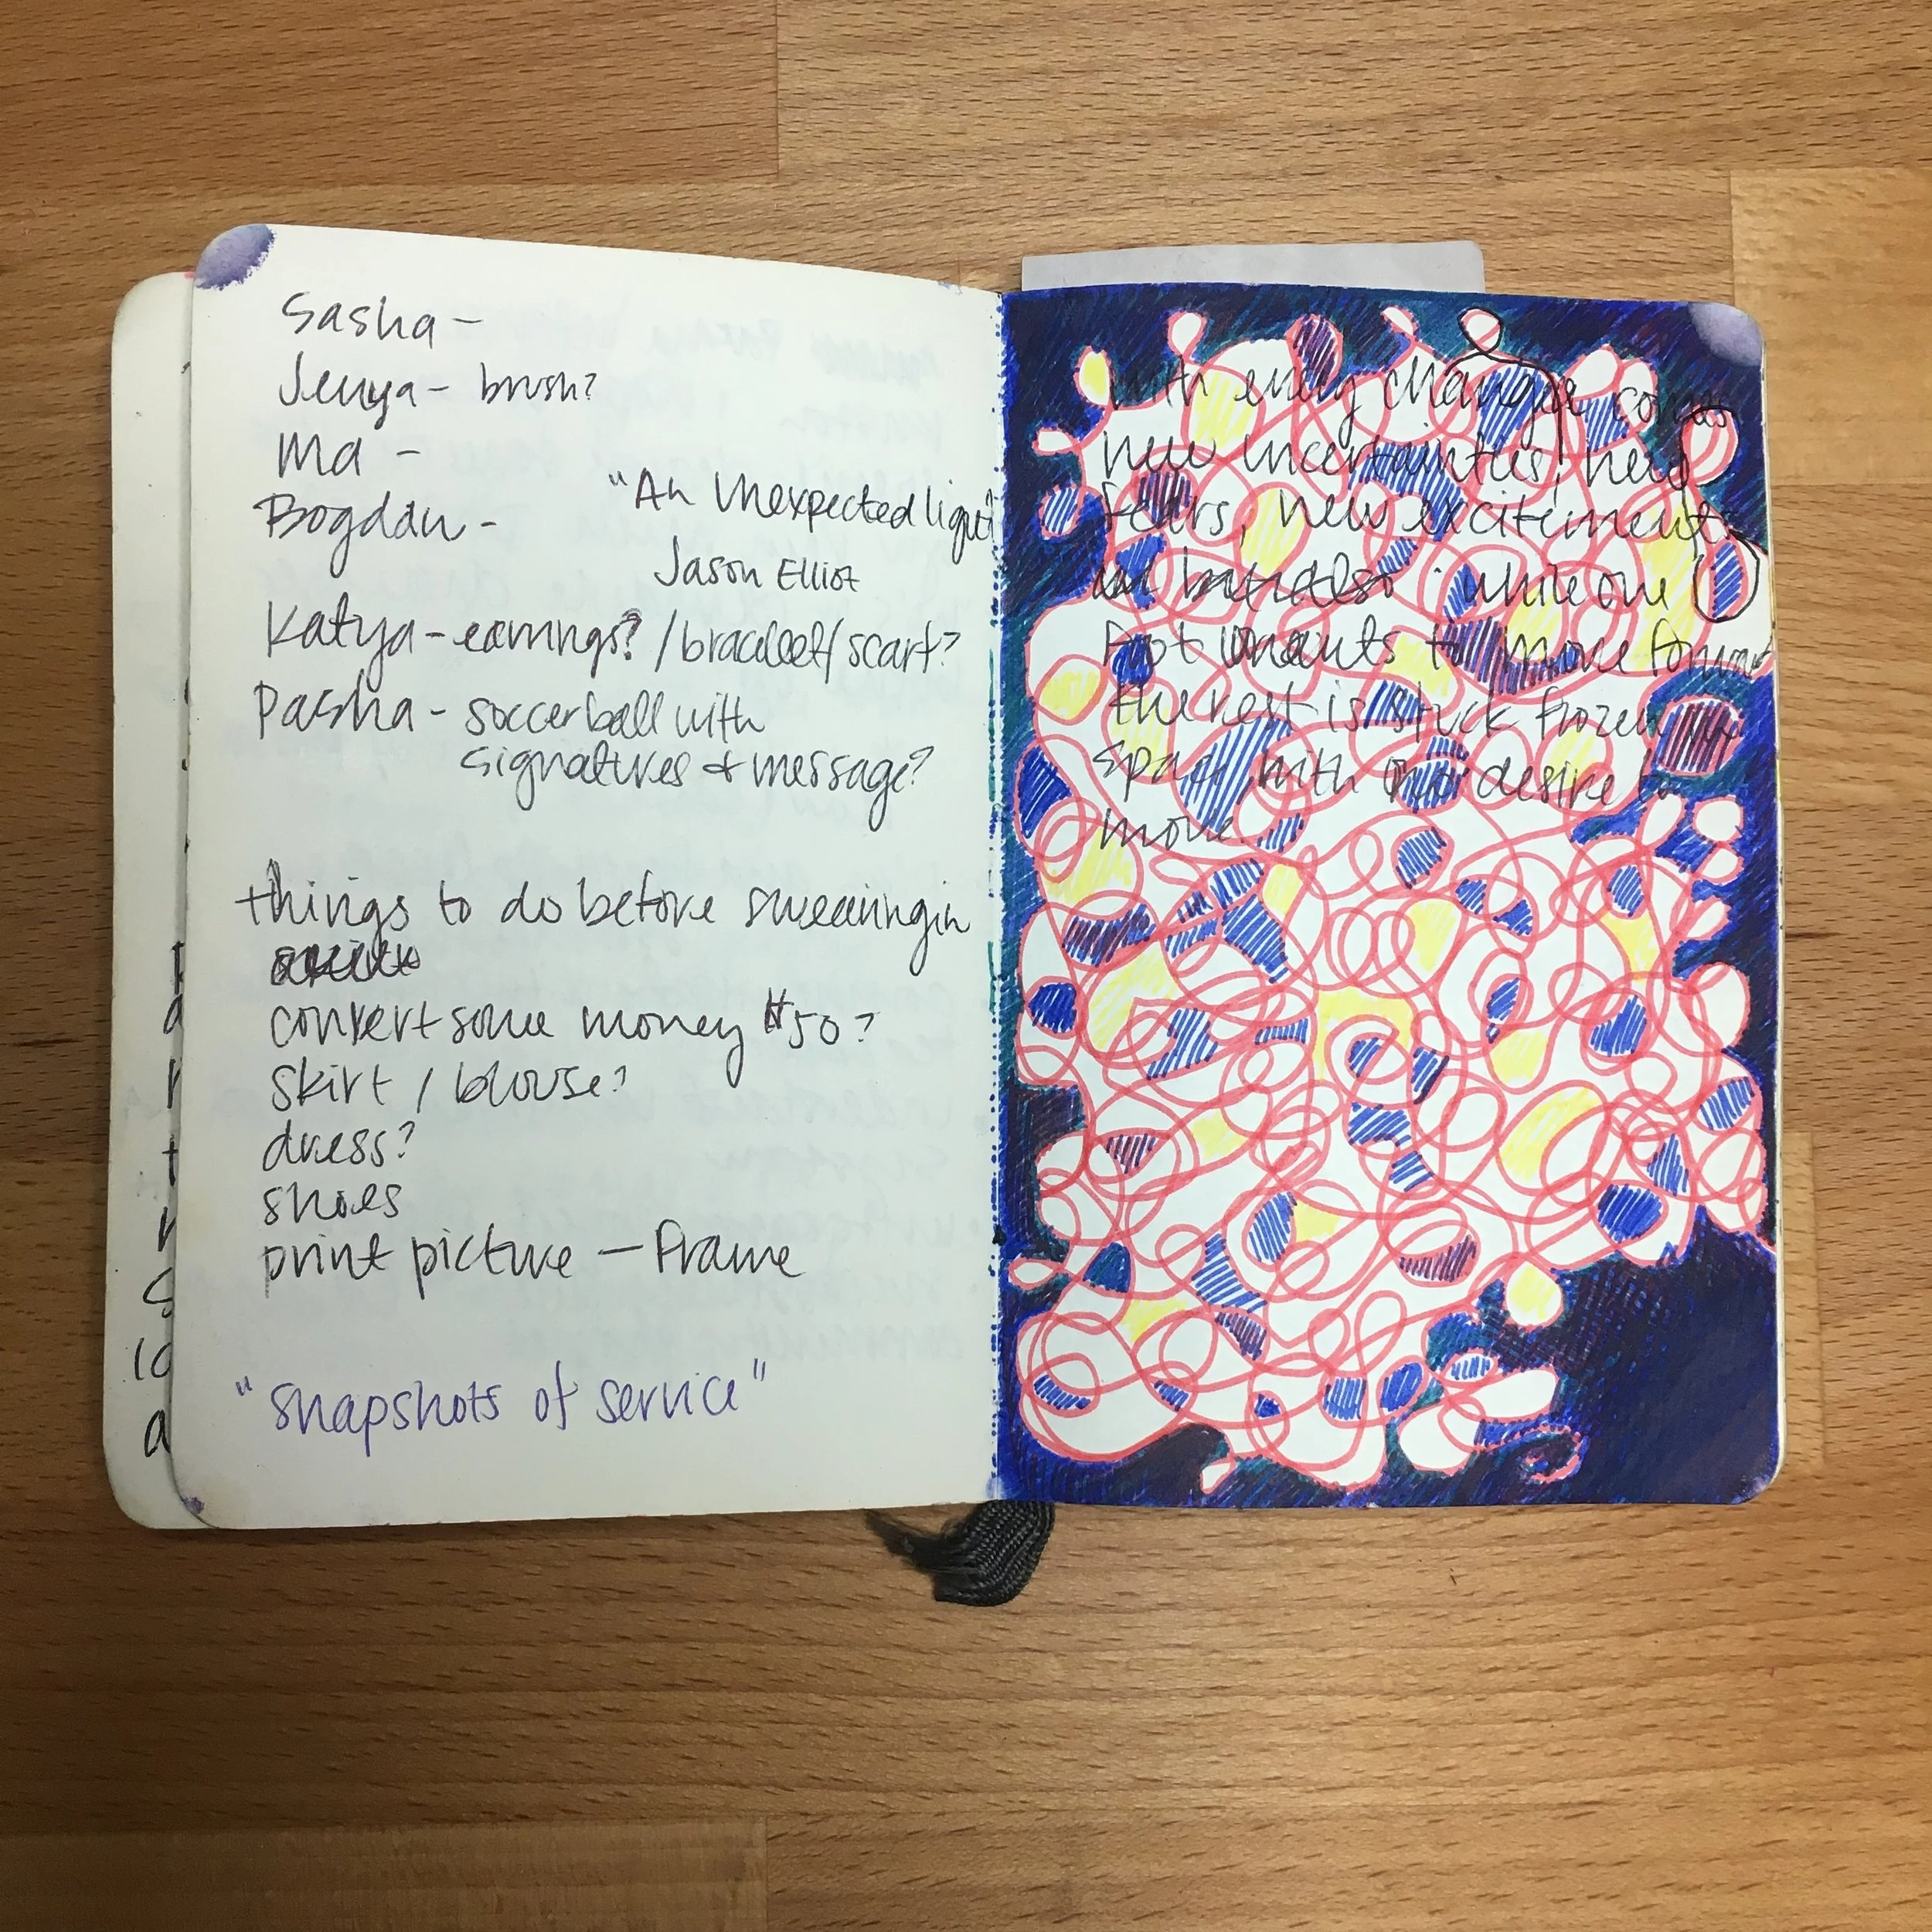 Sasha -
Jenya - brush?
Ma -
Bogdan -
"An Unexpected light"
Jason Elliot
Katya - earrings? / bracelet / scarf?
Pasha - soccer ball with
signatures & message?
things to do before swearing in
convert some money $50?
skirt / blouse?
dress?
shoes
print picture — Frame
"snapshots of service"
with every change comes
new uncertainties, new
fears, new excitements
but also while one
foot wants to move forward
the rest is stuck frozen
with desire to
move.